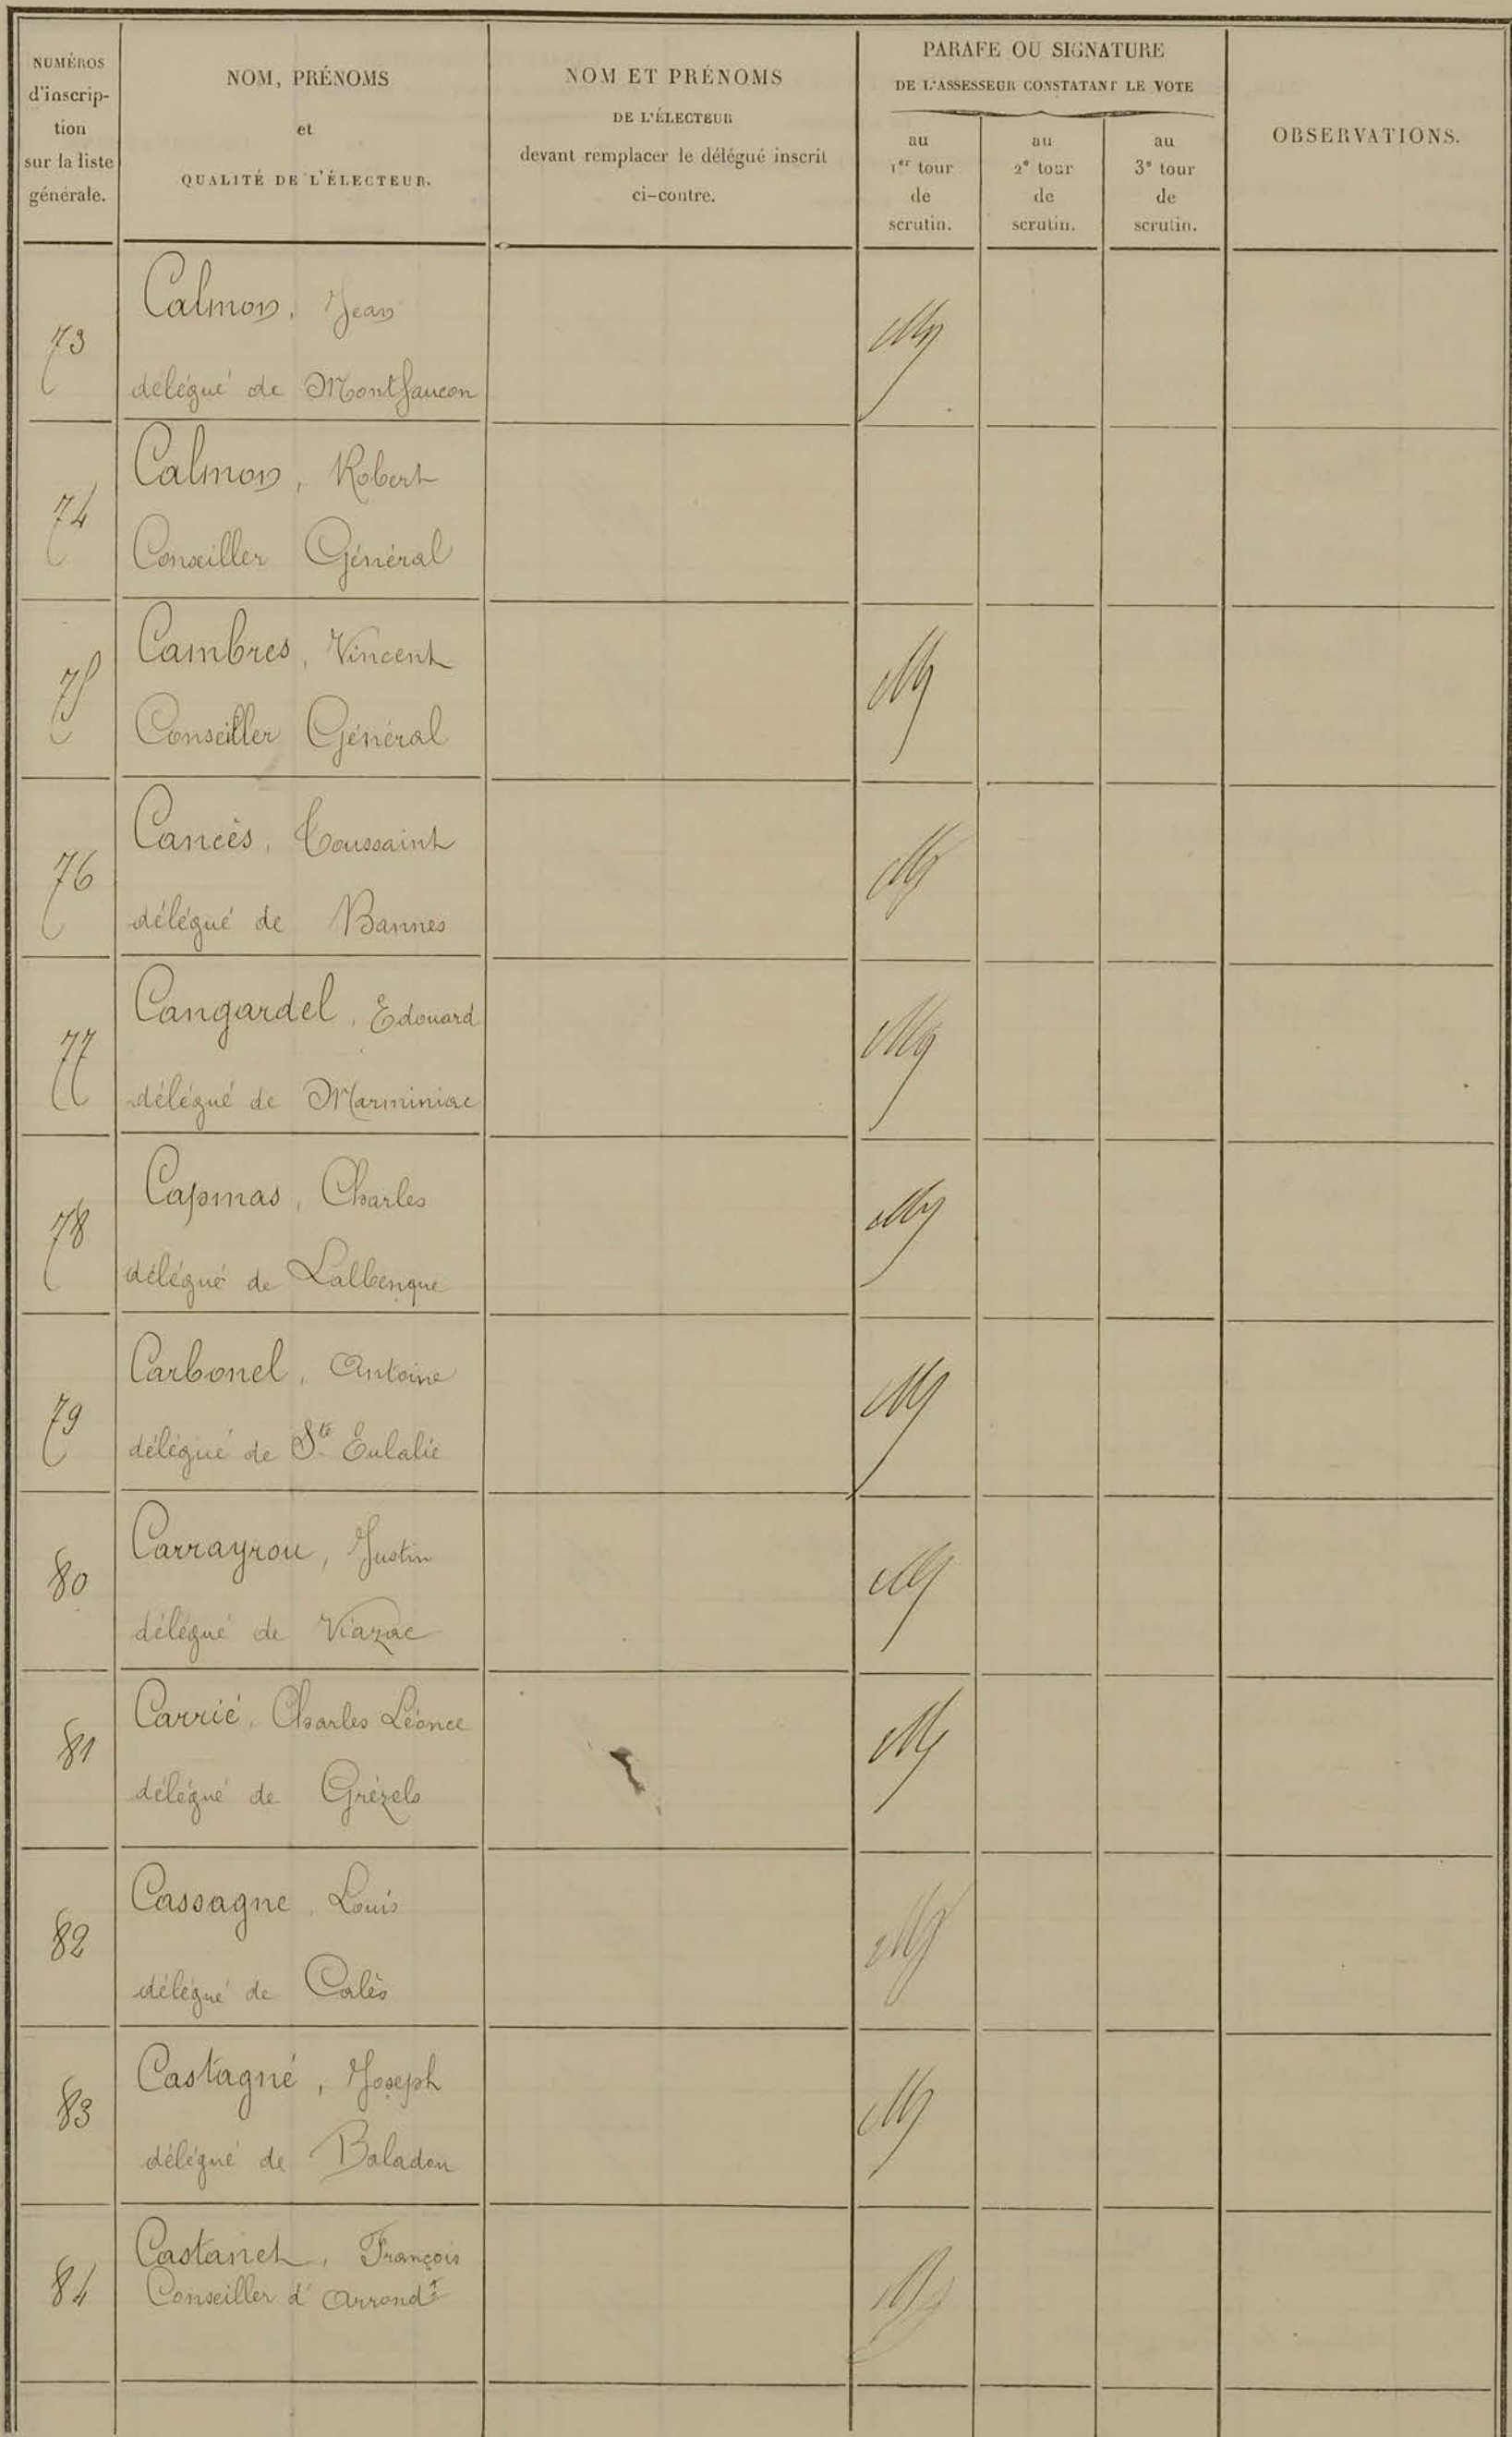 NUMÉROS
d'inscrip-
tion
sur la liste
générale.
NOM, PRÉNOMS
et
QUALITÉ DE L'ÉLECTEUR.
NOM ET PRÉNOMS
DE L'ÉLECTEUR
devant remplacer le délégué inscrit
ci-contre.
PARAFE OU SIGNATURE
DE L'ASSESSEUR CONSTATANT LE VOTE
au
1er tour
de
scrutin.
au
2e tour
de
scrutin.
au
3e tour
de
scrutin.
OBSERVATIONS.
73
Calmon, Jean
délégué de Montfaucon
74
Calmon, Robert
Conseiller Général
75
Cambres, Vincent
Conseiller Général
76
Cancès, Toussaint
délégué de Bannes
77
Cangardel, Edouard
délégué de Marminiac
78
Capmas, Charles
délégué de Lalbenque
79
Carbonel, Antoine
délégué de Ste Eulalie
80
Carrayrou, Justin
délégué de Viazac
81
Carrié, Charles Léonce
délégué de Grézels
82
Cassagne, Louis
délégué de Calès
83
Castagné, Joseph
délégué de Baladou
84
Castanet, François
Conseiller d'Arrondt